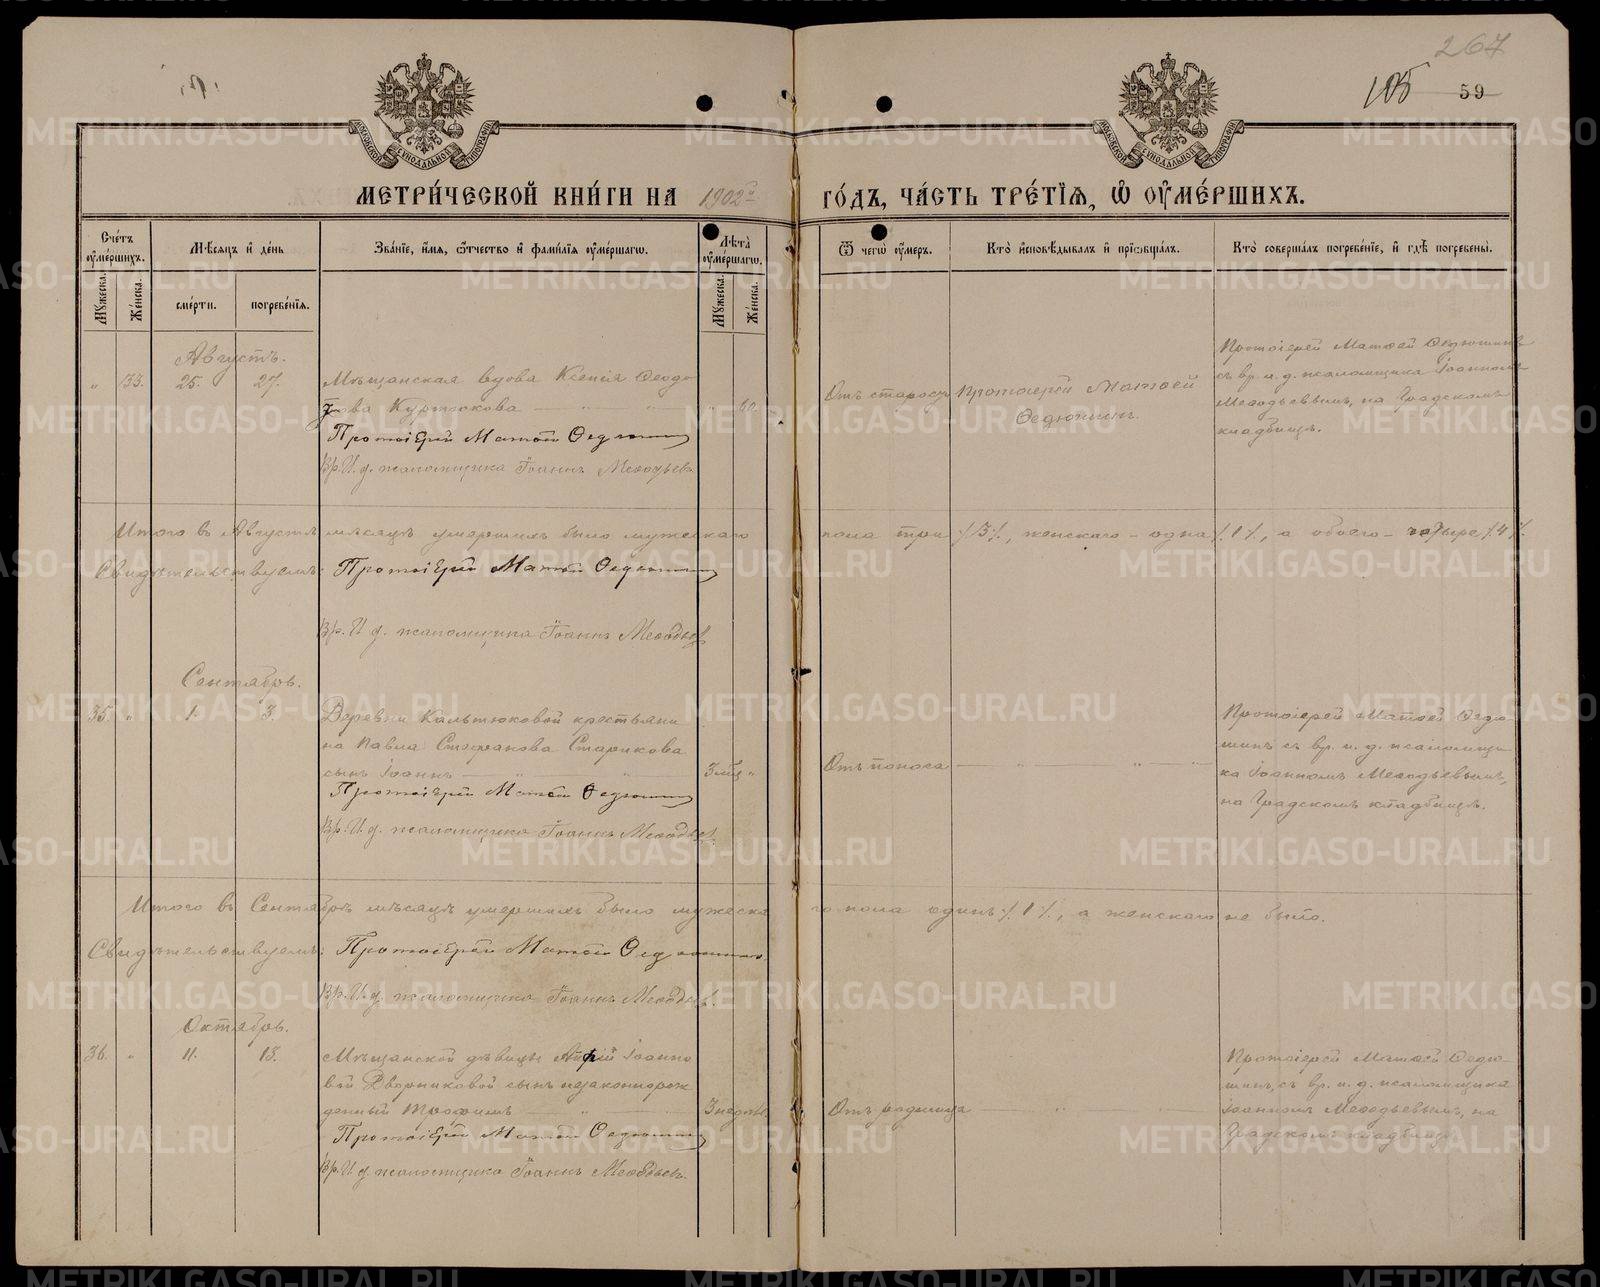 267
105 59
МОСКОВСКОЙ СѴНОДАЛЬНОЙ ТИПОГРАФІИ
МОСКОВСКОЙ СѴНОДАЛЬНОЙ ТИПОГРАФІИ
МЕТРИ́ЧЕСКОЙ КНИ́ГИ НА 1902й ГО́ДЪ, ЧА́СТЬ ТРЕ́ТІѦ, Ѡ҆ ОУ҆МЕ́РШИХЪ.
Сче́тъ оу҆ме́ршихъ.
Мꙋжеска.
Же́нска.
Мѣ́сѧцъ и҆ де́нь
сме́рти.
погребе́нїѧ.
Зва́нїе, и҆́мѧ, ѻ҆́тчество и҆ фами́лїѧ оу҆ме́ршагѡ.
Лѣ̑та̀ оу҆ме́ршагѡ.
Мꙋжеска.
Же́нска.
Ѿ чегѡ̀ оу҆́меръ.
Кто̀ и҆сповѣ́дывалъ и҆ прїѡбща́лъ.
Кто̀ соверша́лъ погребе́нїе, и҆ гдѣ̀ погребены̀.
Августъ.
" 33. 25. 27.
Мѣщанская вдова Ксенія Ѳеодо
рова Куртюкова — " — " — " 60.
Протоіерей Матѳей Ѳедюшинъ
Вр. И. д. псаломщика Іоаннъ Меѳодьевъ
Отъ старости
Протоіерей Матѳей
Ѳедюшинъ.
Протоіерей Матѳей Ѳедюшинъ
съ вр. и. д. псаломщика Іоанномъ
Меѳодьевымъ, на Градскомъ
кладбищѣ.
Итого въ Августѣ мѣсяцѣ умершихъ было мужескаго пола три ./.3./., женскаго — одна ./.1./., а обоего — четыре ./.4./.
Свидѣтельствуемъ: Протоіерей Матѳей Ѳедюшинъ
Вр. И. д. псаломщика Іоаннъ Меѳодьевъ
Сентябрь.
35. " 1. 3.
Деревни Кальтюковой крестьяни
на Павла Стефанова Старикова
сынъ Іоаннъ — " — " — 3 мѣс "
Протоіерей Матѳей Ѳедюшинъ
Вр. И. д. псаломщика Іоаннъ Меѳодьевъ
Отъ поноса — " — " — "
Протоіерей Матѳей Ѳедю-
шинъ съ вр. и. д. псаломщи-
ка Іоанномъ Меѳодьевымъ,
на Градскомъ кладбищѣ.
Итого въ Сентябрѣ мѣсяцѣ умершихъ было мужеска го пола одинъ ./.1./., а женскаго не было.
Свидѣтельствуемъ: Протоіерей Матѳей Ѳедюшинъ
Вр. И. д. псаломщика Іоаннъ Меѳодьевъ.
Октябрь.
36. " 11. 13.
Мѣщанской дѣвицы Іоанно
вой Дворниковой сынъ незаконнорож
денный Трофимъ — " — 3 недѣль
Протоіерей Матѳей Ѳедюшинъ
Вр. И. д. псаломщика Іоаннъ Меѳодьевъ.
Отъ родимца — " —
Протоіерей Матѳей Ѳедю-
шинъ, съ вр. и. д. псаломщика
Іоанномъ Меѳодьевымъ, на
Градскомъ кладбищѣ.
METRIKI.GASO-URAL.RU